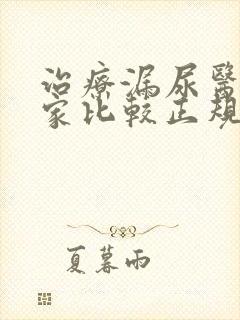 治療漏尿醫
家比較正規
夏暮雨